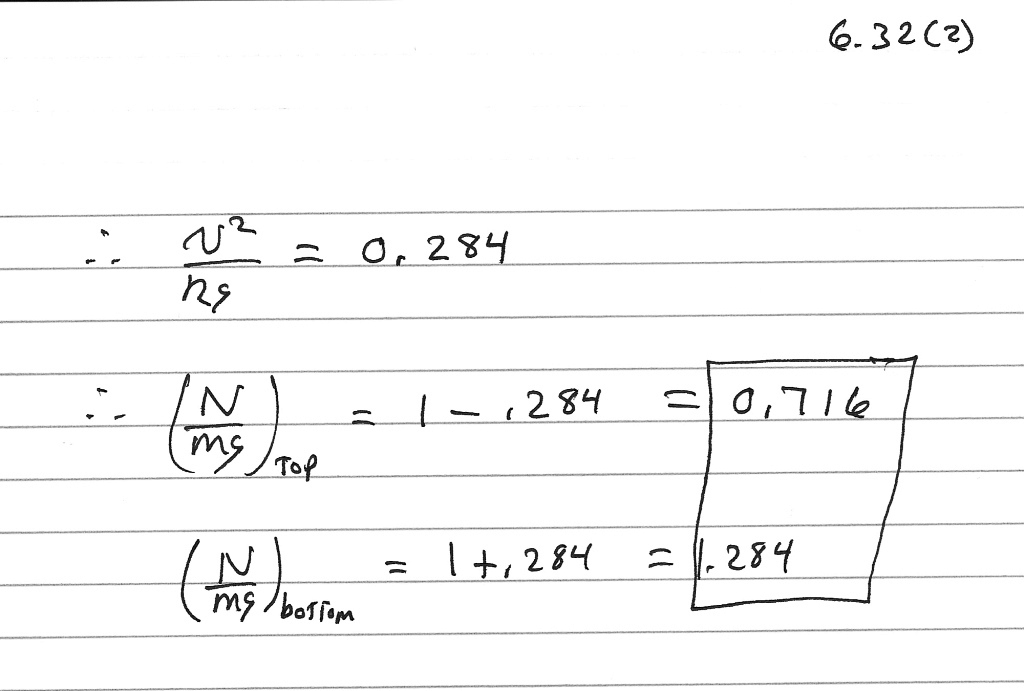 6.32(2)
∴ v²/rg = 0.284
∴ (N/mg)Top = 1 - .284 = 0.716
(N/mg)bottom = 1 + .284 = 1.284